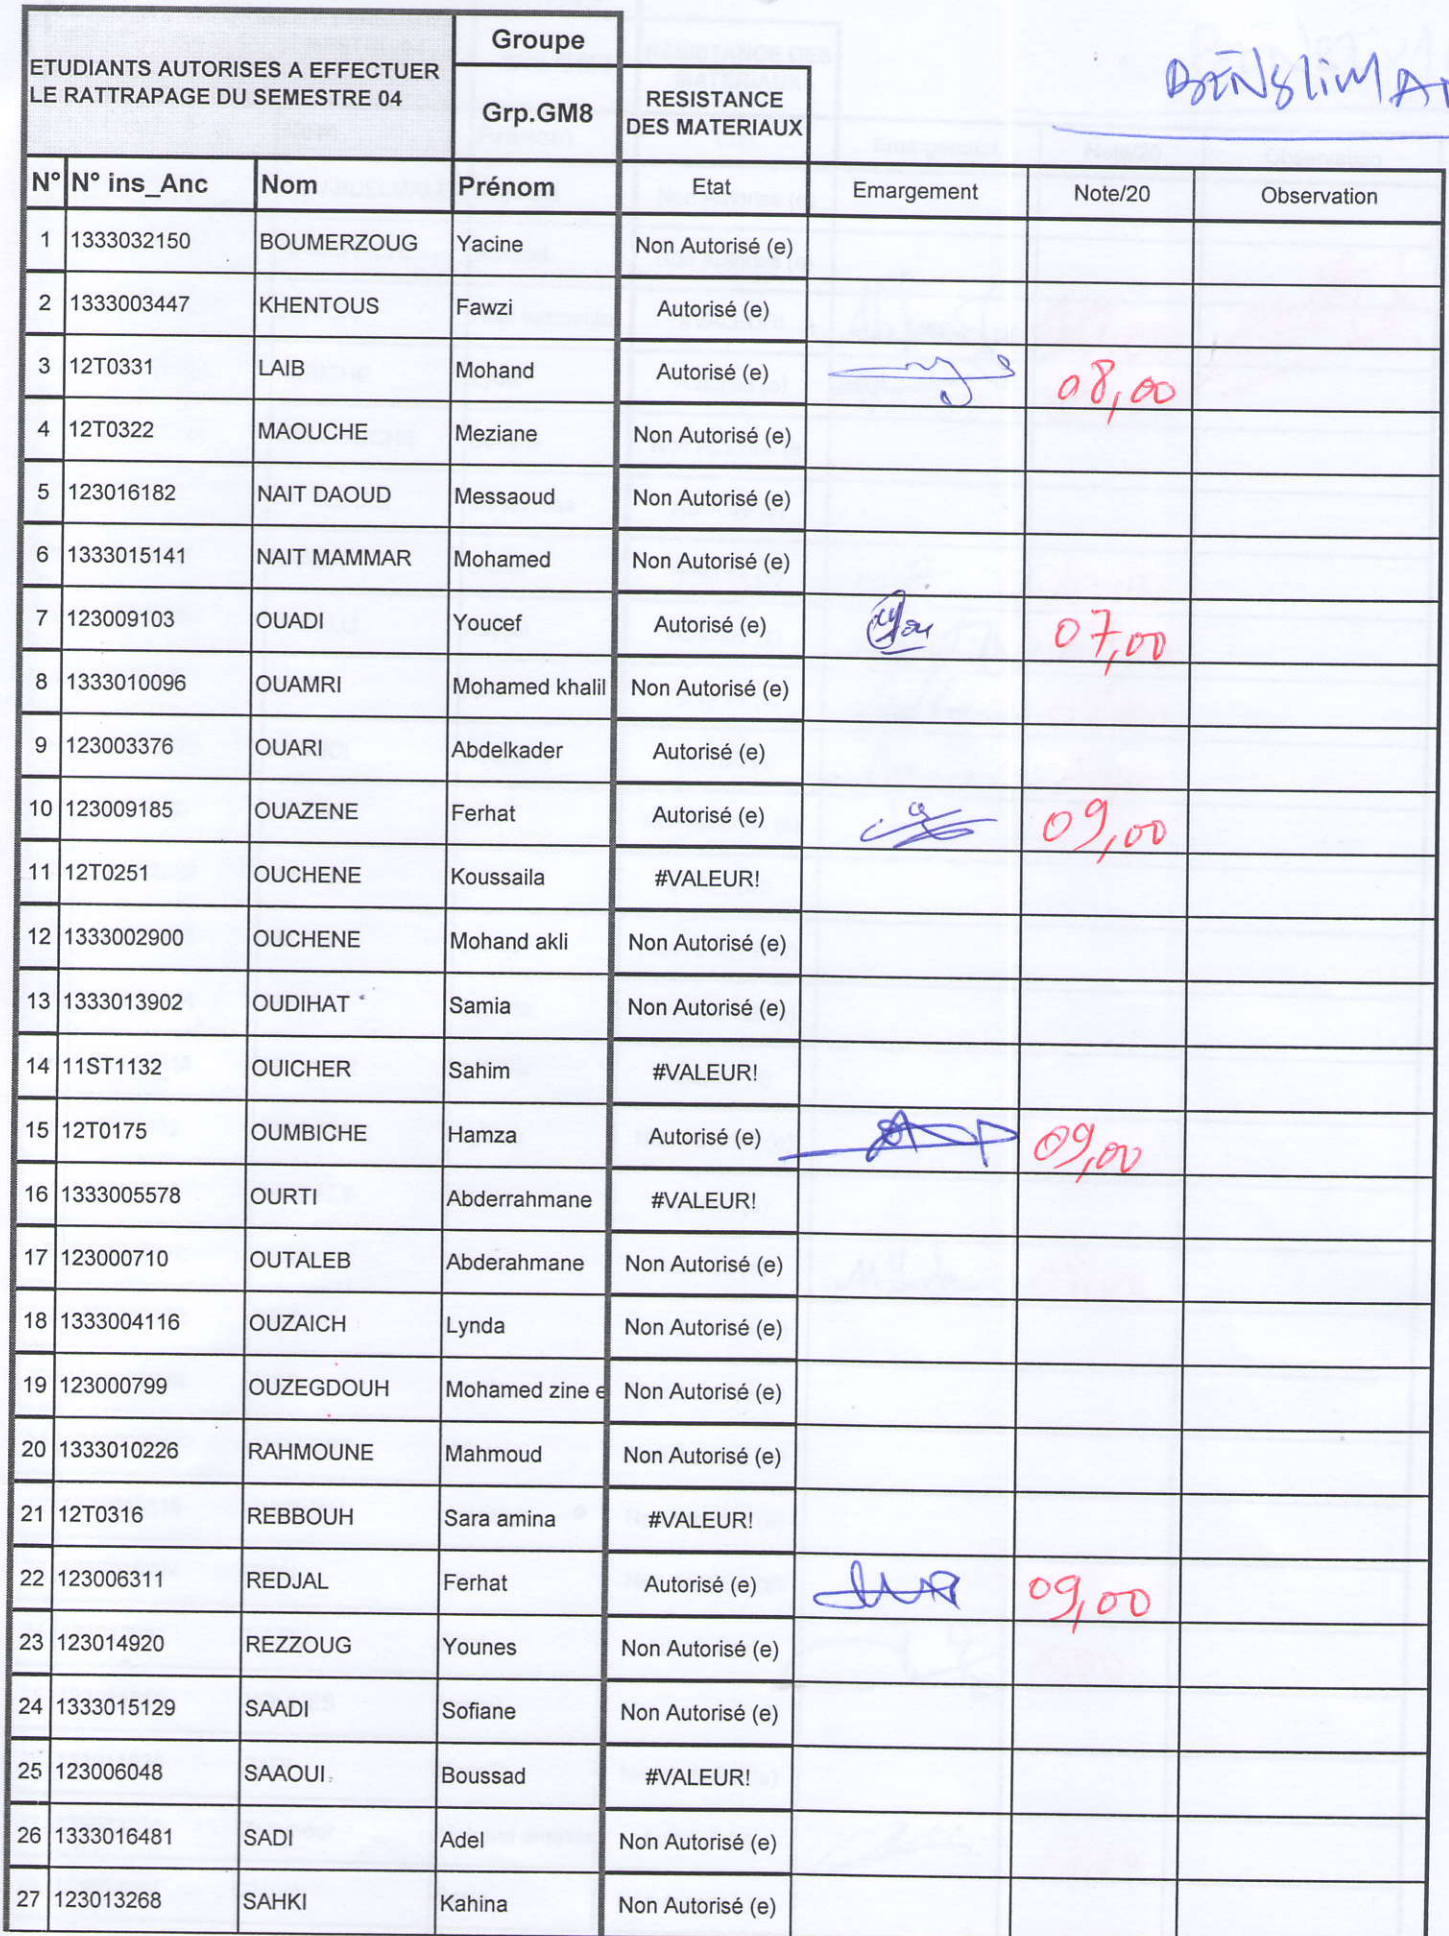 Groupe
ETUDIANTS AUTORISES A EFFECTUER
LE RATTRAPAGE DU SEMESTRE 04
Grp.GM8
RESISTANCE
DES MATERIAUX
N° N° ins_Anc Nom Prénom Etat Emargement Note/20 Observation
1 1333032150 BOUMERZOUG Yacine Non Autorisé (e)
2 1333003447 KHENTOUS Fawzi Autorisé (e)
3 12T0331 LAIB Mohand Autorisé (e) 08,00
4 12T0322 MAOUCHE Meziane Non Autorisé (e)
5 123016182 NAIT DAOUD Messaoud Non Autorisé (e)
6 1333015141 NAIT MAMMAR Mohamed Non Autorisé (e)
7 123009103 OUADI Youcef Autorisé (e) 07,00
8 1333010096 OUAMRI Mohamed khalil Non Autorisé (e)
9 123003376 OUARI Abdelkader Autorisé (e)
10 123009185 OUAZENE Ferhat Autorisé (e) 09,00
11 12T0251 OUCHENE Koussaila #VALEUR!
12 1333002900 OUCHENE Mohand akli Non Autorisé (e)
13 1333013902 OUDIHAT Samia Non Autorisé (e)
14 11ST1132 OUICHER Sahim #VALEUR!
15 12T0175 OUMBICHE Hamza Autorisé (e) 09,00
16 1333005578 OURTI Abderrahmane #VALEUR!
17 123000710 OUTALEB Abderahmane Non Autorisé (e)
18 1333004116 OUZAICH Lynda Non Autorisé (e)
19 123000799 OUZEGDOUH Mohamed zine e Non Autorisé (e)
20 1333010226 RAHMOUNE Mahmoud Non Autorisé (e)
21 12T0316 REBBOUH Sara amina #VALEUR!
22 123006311 REDJAL Ferhat Autorisé (e) 09,00
23 123014920 REZZOUG Younes Non Autorisé (e)
24 1333015129 SAADI Sofiane Non Autorisé (e)
25 123006048 SAAOUI Boussad #VALEUR!
26 1333016481 SADI Adel Non Autorisé (e)
27 123013268 SAHKI Kahina Non Autorisé (e)